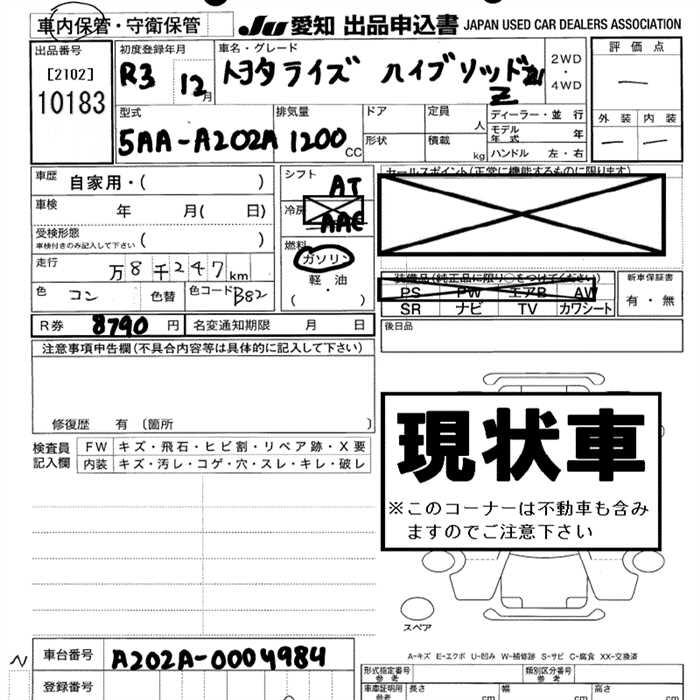 車内保管・守衛保管 JU 愛知 出品申込書 JAPAN USED CAR DEALERS ASSOCIATION
出品番号 初度登録年月 車名・グレード 2WD・4WD 評価点
[2102] R3 12月 トヨタライズ ハイブリッド Z
10183
外装 内装
型式 排気量 ドア 定員 人 ディーラー・並行
5AA-A202A 1200CC 形状 積載 kg モデル年式 年
ハンドル 左・右
車歴 自家用・( ) シフト AT セールスポイント(正常に機能するものに限ります)
車検 年 月( 日) 冷房 AAC
受検形態 ( )
車検付きのみ記入して下さい
燃料 ガソリン
軽・油
( )
走行 万8千247km
色 コン 色替 色コード B82
装備品(純正品に限り○をつけてください) 新車保証書
PS PW エアB AW 有・無
SR ナビ TV カワシート
R券 8790円 名変通知期限 月 日 後日品
注意事項申告欄(不具合内容等は具体的に記入して下さい)
修復歴 有 〔箇所 〕
現状車
※このコーナーは不動車も含み
ますのでご注意下さい
検査員 FW キズ・飛石・ヒビ割・リペア跡・X要
記入欄 内装 キズ・汚レ・コゲ・穴・スレ・キレ・破レ
スペア
A-キズ E-エクボ U-凹み W-補修跡 S-サビ C-腐食 XX-交換済
車台番号 A202A-0004984
登録番号
型式指定番号 参考 類別区分番号 参考
車庫証明用 参考 長さ cm 幅 cm 高さ cm